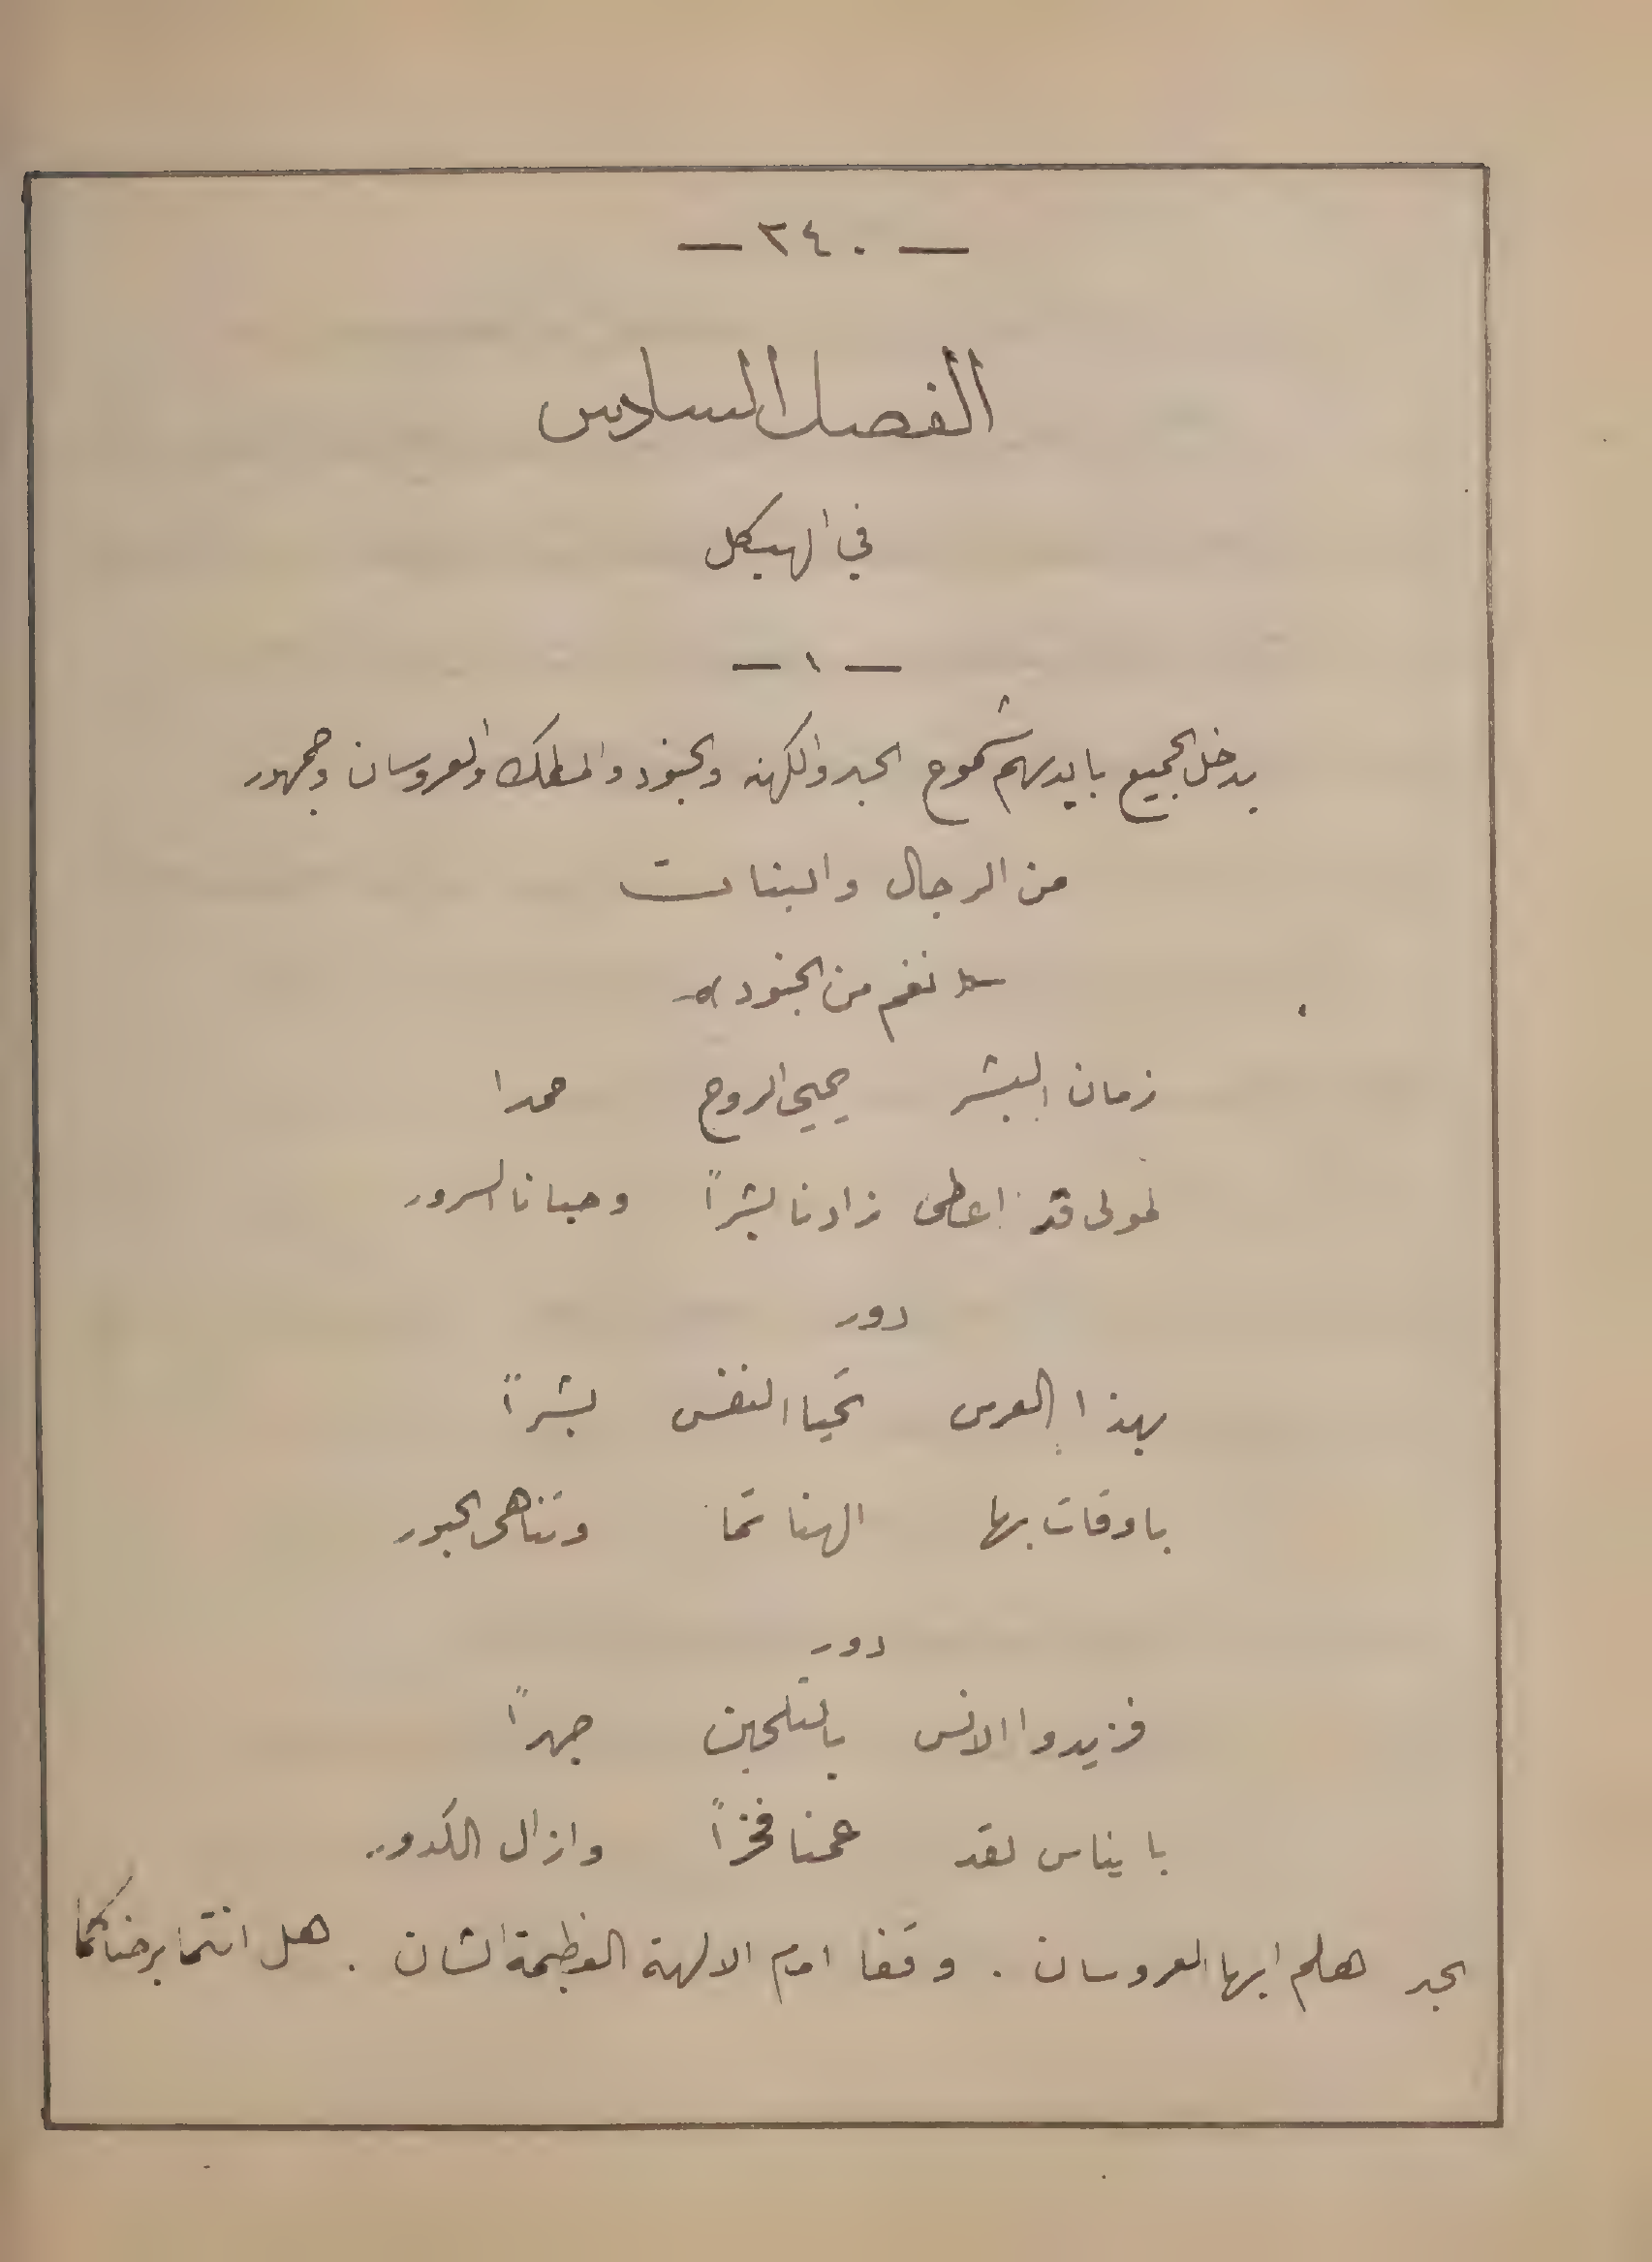 — ٢٤٠ —
الفصل السادس
في الهيكل
— ١ —
يدخل الجميع بايديهم شموع الحبر والكهنه والجنود والملك والعروسان وجمهور
من الرجال والبنات
نغم من الجنود
زمان البشر يحيي الروح حمدا
لمولى قد اعطى زادنا بشراً وحبانا السرور
دور
بهذا العرس تحيا النفس بشراً
باوقات بها الهنا تما وتناهى الحبور
دور
فزيدوا الانس بالتلحين جهراً
يا يناس لقد عمنا فخراً وازال الكدور
الحبر هلم ايها العروسان . وقفا امام الالهة العظيمة الشان . هل انتما برضاكما